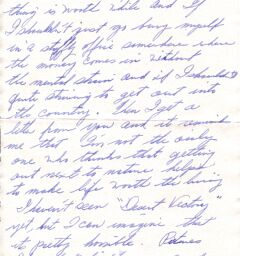 thing is worth while and if
I shouldn't just go bury myself
in a stuffy office somewhere where
the money comes in without
the mental strain and if I shouldn't
quite striving to get out into
the country. Then I get a
letter from you and it
me that I'm not the only
one who thinks that getting
out next to nature helps
to make life worth the living
I haven't seen "Desert Victory"
yet, but I can imagine that
it pretty horrible.